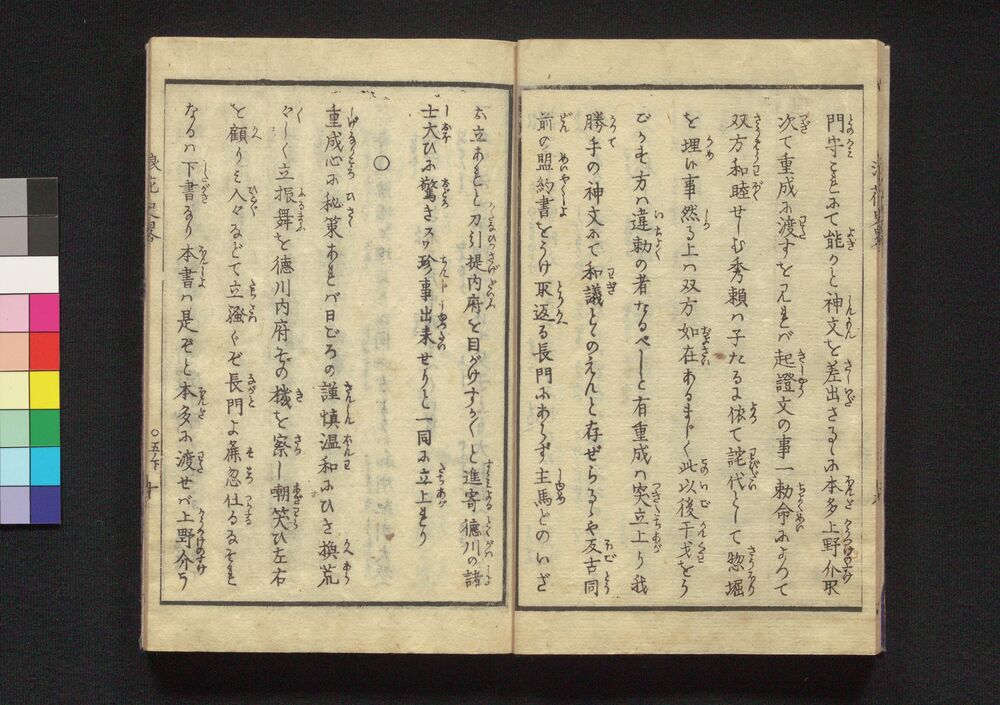 門守これにて能かと神文を差出さるしに本多上野介取
次て重成に渡すを見れば起證文の事一勅命によつて
双方和睦せしむ秀頼ハ子たるに依て詫代として惣堀
を埋い事然る上ハ双方如在あるまじく此以後干戈をう
ごかす方ハ違勅の者なるべしと有重成ハ突立上り我
勝手の神文にて和議とゝのえんと存ぜらるゝや反古同
前の盟約書をうけ取返る長門にあらず主馬どのいざ
お立あれと刀引提内府を目がけすかくと進寄徳川の諸
士大ひに驚きスワ珍事出来せりと一同に立上れり
〇
重成心に秘策あれバ日ごろの謹慎温和にひき換荒
々しく立振舞を徳川内府其の機を察し嘲笑ひ左右
を顧り見人々などて立騒ぐぞ長門よ麁忽仕るなそれ
なるハ下書なり本書ハ是ぞと本多に渡せバ上野介う
浪花史略
〇五ノ下
十